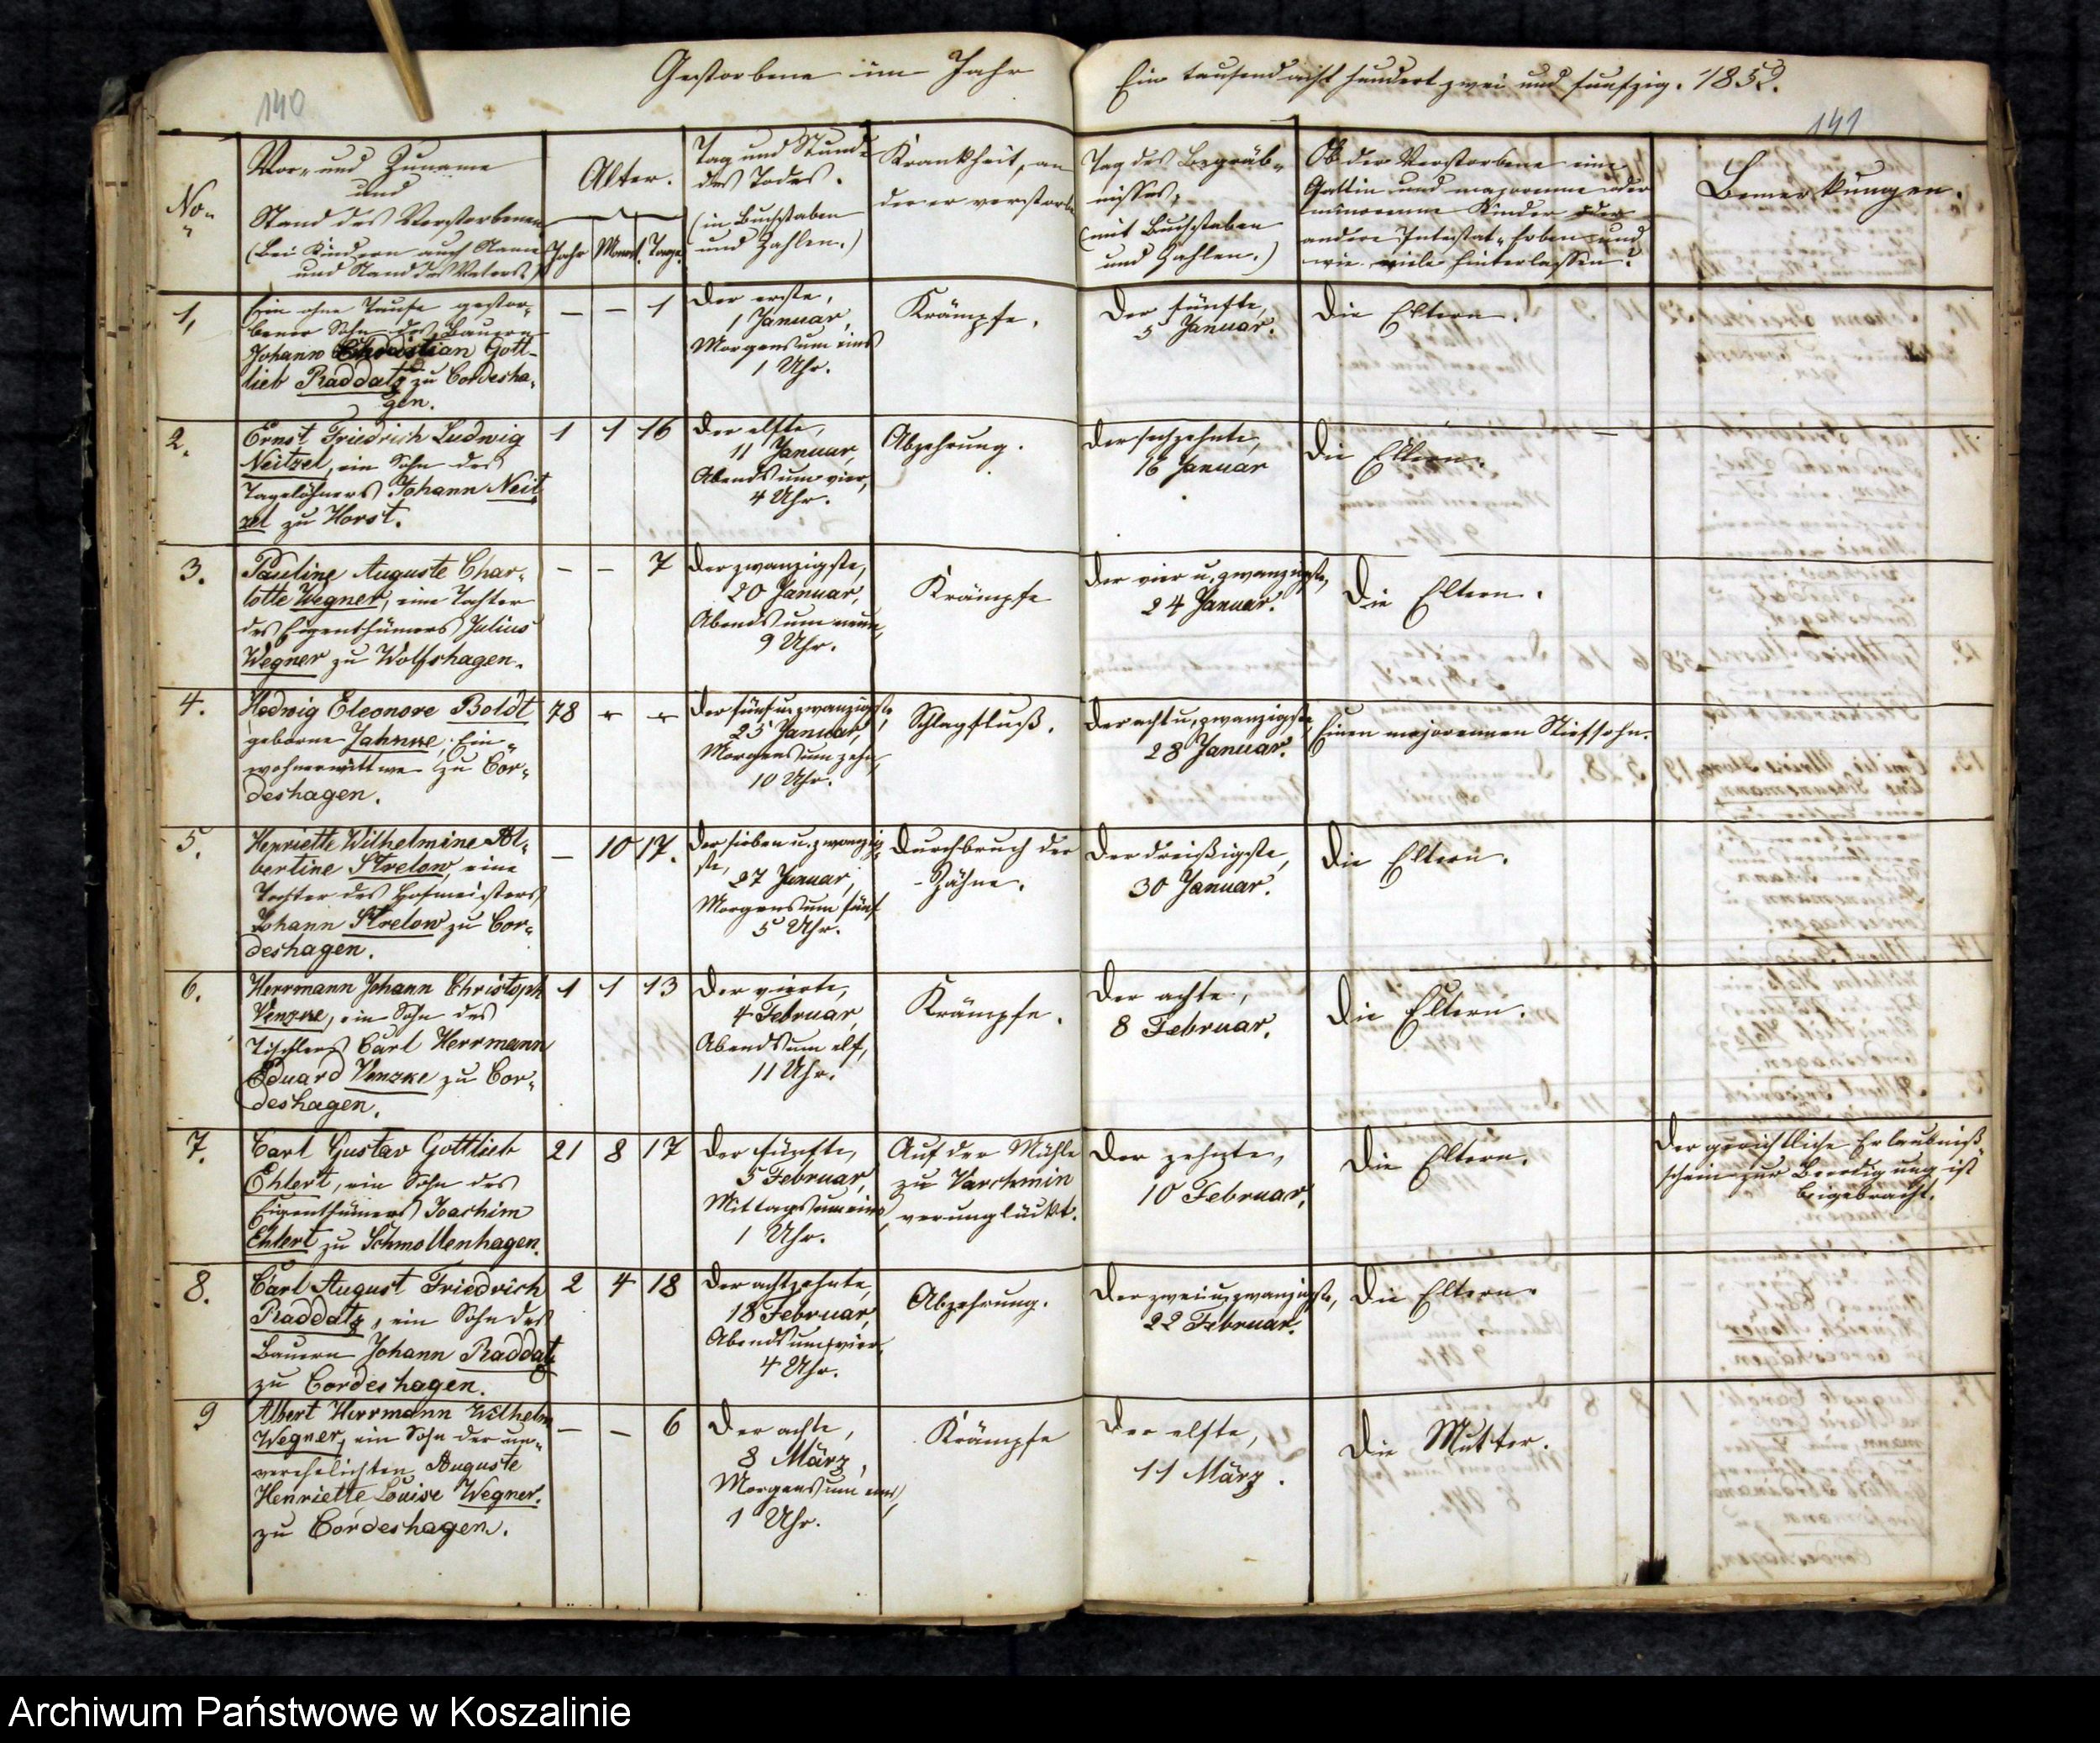 Gestorbene im Jahr
Ein tausend acht hundert zwei und funfzig. 1852.
140
141
No.
Vor- und Zuname
und
Stand des Verstorbenen
(bei Kindern auch Name
und Stand des Vaters.)
Alter.
Jahr
Monat.
Tage.
Tag und Stunde
des Todes.
(in Buchstaben
und Zahlen.)
Krankheit, an
der er verstorben
Tag des Begräb-
nisses,
(mit Buchstaben
und Zahlen.)
Ob der Verstorbene eine
Gattin und majorenne oder
minorenne Kinder oder
andere Intestat-Erben und
wie viele hinterlassen?
Bemerkungen.
1,
Ein ohne Taufe gestor-
bener Sohn des Bauern
Johann Christian Gott-
lieb Raddatz zu Cordesha-
gen.
— — 1
Der erste,
1 Januar,
Morgens um eins
1 Uhr.
Krämpfe.
Der fünfte,
5 Januar.
Die Eltern.
2.
Ernst Friedrich Ludwig
Neitzel, ein Sohn des
Tagelöhners Johann Neit-
zel zu Horst.
1 1 16
Der elfte,
11 Januar,
Abends um vier,
4 Uhr.
Abzehrung.
Der sechzehnte,
16 Januar
Die Eltern.
3.
Pauline Auguste Char-
lotte Wegner, eine Tochter
des Eigenthümers Julius
Wegner zu Wolfshagen.
— — 7
Der zwanzigste,
20 Januar,
Abends um neun,
9 Uhr.
Krämpfe
Der vier u. zwanzigste,
24 Januar.
Die Eltern.
4.
Hedwig Eleonore Boldt
geborne Jahnke, Ein-
wohnerwittwe zu Cor-
deshagen.
78 — —
Der fünf u. zwanzigste,
25 Januar,
Morgens um zehn,
10 Uhr.
Schlagfluß.
Der acht u. zwanzigste,
28 Januar.
Einen majorennen Stiefsohn.
5.
Henriette Wilhelmine Al-
bertine Strelow, eine
Tochter des Hofmeisters
Johann Strelow zu Cor-
deshagen.
— 10 17.
Der sieben u. zwanzig-
ste,
27 Januar,
Morgens um fünf
5 Uhr.
Durchbruch der
Zähne.
Der dreißigste,
30 Januar.
Die Eltern.
6.
Herrmann Johann Christoph
Venzke, ein Sohn des
Tischlers Carl Herrmann
Eduard Venzke zu Cor-
deshagen.
1 1 13
Der vierte,
4 Februar,
Abends um elf,
11 Uhr.
Krämpfe.
Der achte,
8 Februar.
Die Eltern.
7.
Carl Gustav Gottlieb
Ehlert, ein Sohn des
Eigenthümers Joachim
Ehlert zu Schmollenhagen.
21 8 17
Der fünfte,
5 Februar,
Mittags um eins,
1 Uhr.
Auf der Mühle
zu Varchmin
verunglückt.
Der zehnte,
10 Februar,
Die Eltern.
Der gerichtliche Erlaubniß-
schein zur Beerdigung ist
beigebracht.
8.
Carl August Friedrich
Raddatz, ein Sohn des
Bauern Johann Raddatz
zu Cordeshagen.
2 4 18
Der achtzehnte,
18 Februar,
Abends um vier,
4 Uhr.
Abzehrung.
Der zwei u. zwanzigste,
22 Februar.
Die Eltern.
9
Albert Herrmann Wilhelm
Wegner, ein Sohn der un-
verehelichten Auguste
Henriette Louise Wegner.
zu Cordeshagen.
— — 6
Der achte,
8 März,
Morgens um eins,
1 Uhr.
Krämpfe
Der elfte,
11 März.
Die Mutter.
Archiwum Państwowe w Koszalinie